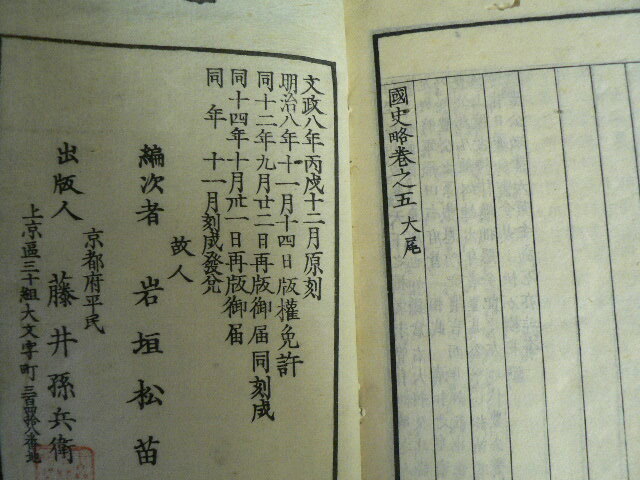 國史略卷之五 大尾
文政八年丙戌十二月原刻
明治八年十一月十四日版權免許
同十二年九月廿二日再版御届 同刻成
同十四年十月卅一日再版御届
同年 十一月刻成發兌
故人
編次者 岩垣松苗
京都府平民
出版人 藤井孫兵衛
上京區三十組大文字町三百四拾八番地